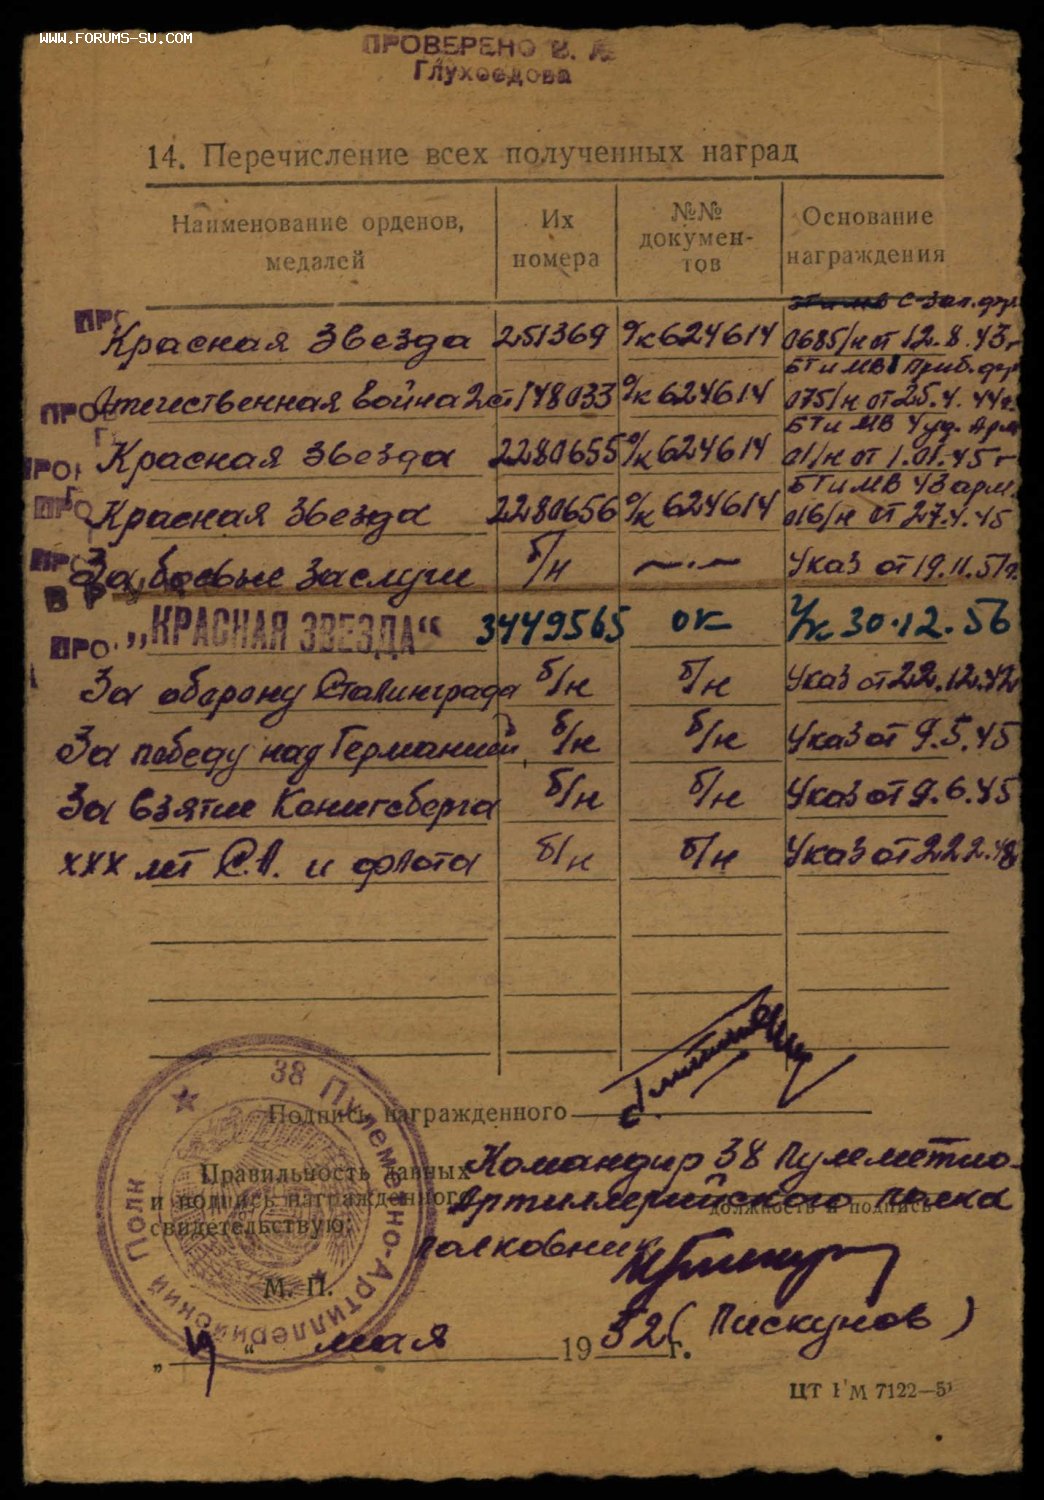 WWW.FORUMS-SU.COM
ПРОВЕРЕНО В. А.
Глухоедова
14. Перечисление всех полученных наград
Наименование орденов, медалей
Их номера
№№ докумен-тов
Основание награждения
С-Зап. фр.
ПРО Красная Звезда 251369 о/к 624614 0685/н от 12.8.43 г
БТ и МВ Приб. фр
ПРО Отечественная война 2 ст 148033 о/к 624614 075/н от 25.4.44 г.
БТ и МВ 4 уд. Арм
ПРО Красная Звезда 2280655 о/к 624614 01/н от 1.01.45 г
БТ и МВ 43 арм.
ПРО Красная Звезда 2280656 о/к 624614 016/н от 27.4.45
ПРО За боевые заслуги б/н —.— Указ от 19.11.51 г.
ПРО „КРАСНАЯ ЗВЕЗДА“ 3449565 ок Ук 30.12.56
За оборону Сталинграда б/н б/н Указ от 22.12.42
За победу над Германией б/н б/н Указ от 9.5.45
За взятие Кенигсберга б/н б/н Указ от 9.6.45
XXX лет С.А. и флота б/н б/н Указ от 22.2.48
38 Пулеметно-Артиллерийский Полк
Подпись награжденного
Правильность данных
и подпись награжденного
свидетельствую:
Командир 38 Пулеметно-
Артиллерийского полка
должность и подпись
полковник
М. П.
(Пискунов)
„4“ мая 1952 г.
ЦТ 7122—51